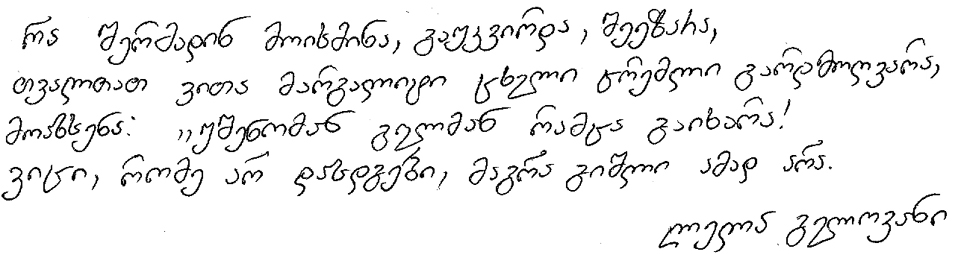 რა შერმადინ მოისმინა, გაუკვირდა, შეეზარა,
თვალთათ ვითა მარგალიტი ცხელი ცრემლი გარდმოღვარა,
მოახსენა: „უშენომან გულმან რამცა გაიხარა!
ვიცი, რომე არ დასდგები, მაგრა გიშლი ამად არა.
ლელა გელოვანი